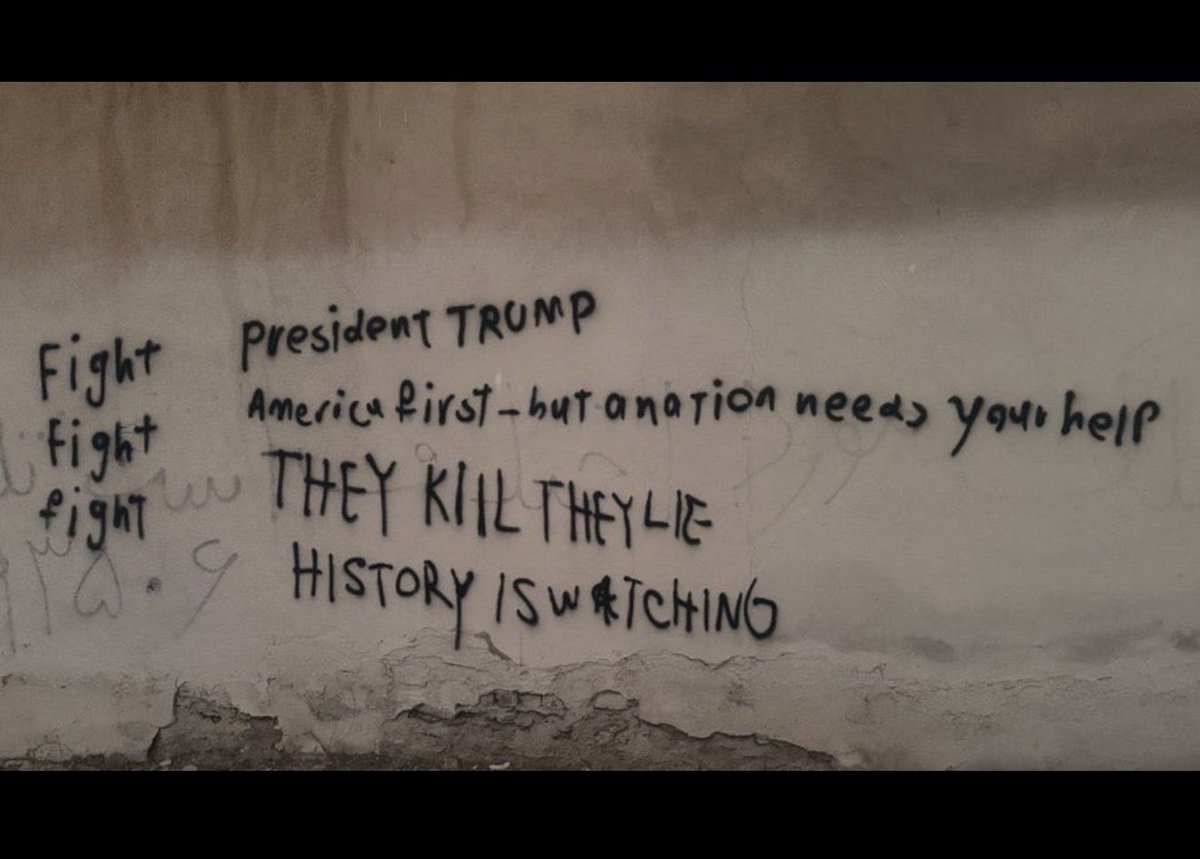 Fight
fight
fight
President TRUMP
America first - but a nation needs your help
THEY KILL THEY LIE
HISTORY IS WATCHING